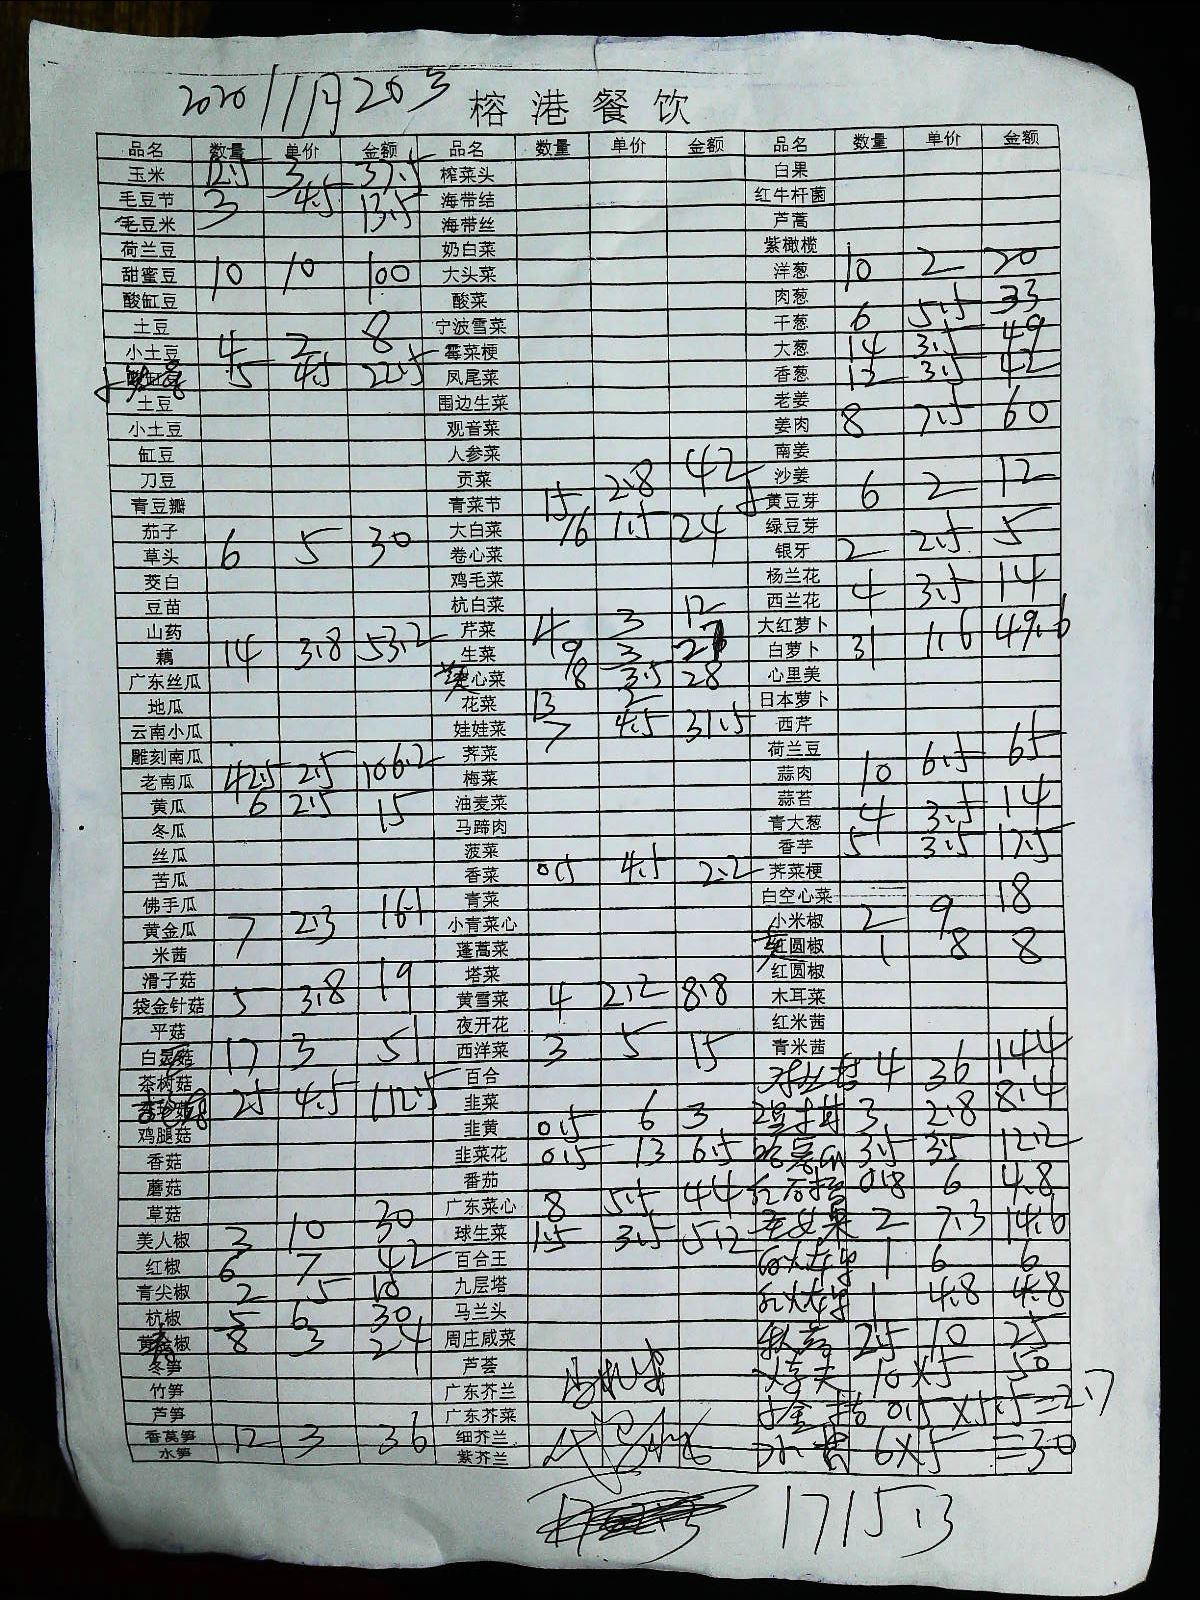 2020 11月20号
榕港餐饮
品名 数量 单价 金额 品名 数量 单价 金额 品名 数量 单价 金额
玉米 12.5 3 37.5 榨菜头 白果
毛豆节 3 4.5 13.5 海带结 红牛杆菌
毛豆米 海带丝 芦蒿
荷兰豆 奶白菜 紫橄榄
甜蜜豆 10 10 100 大头菜 洋葱 10 2 20
酸缸豆 酸菜 肉葱
土豆 宁波雪菜 干葱 6 5.5 33
小土豆 4 2 8 霉菜梗 大葱 14 3.5 49
5 4.5 22.5 凤尾菜 香葱 12 3.5 42
土豆 围边生菜 老姜
小土豆 观音菜 姜肉 8 7.5 60
缸豆 人参菜 南姜
刀豆 贡菜 沙姜
青豆瓣 青菜节 15 2.8 42 黄豆芽 6 2 12
茄子 大白菜 16 1.5 24 绿豆芽
草头 6 5 30 卷心菜 银牙 2 2.5 5
茭白 鸡毛菜 杨兰花
豆苗 杭白菜 西兰花 4 3.5 14
山药 芹菜 4 3 12 大红萝卜
藕 14 3.8 53.2 生菜 9 3 27 白萝卜 31 1.6 49.6
广东丝瓜 心菜 8 3.5 28 心里美
地瓜 花菜 13 2 日本萝卜
云南小瓜 娃娃菜 7 4.5 31.5 西芹
雕刻南瓜 荠菜 荷兰豆
老南瓜 42.5 2.5 106.2 梅菜 蒜肉 10 6.5 65
黄瓜 6 2.5 15 油麦菜 蒜苔
冬瓜 马蹄肉 青大葱 4 3.5 14
丝瓜 菠菜 香芋 5 3.5 17.5
苦瓜 香菜 0.5 4.5 2.2 荠菜梗
佛手瓜 青菜 白空心菜
黄金瓜 7 2.3 16.1 小青菜心 小米椒 2 9 18
米茜 蓬蒿菜 圆椒 1 8 8
滑子菇 塔菜 红圆椒
袋金针菇 5 3.8 19 黄雪菜 4 2.2 8.8 木耳菜
平菇 夜开花 红米茜
白灵菇 17 3 51 西洋菜 3 5 15 青米茜
茶树菇 百合 4 36 144
25 4.5 112.5 韭菜 3 2.8 8.4
鸡腿菇 韭黄 0.5 6 3
香菇 韭菜花 0.5 13 6.5 3.5 3.5 12.2
蘑菇 番茄 0.8 6 4.8
草菇 广东菜心 8 5.5 44
美人椒 3 10 30 球生菜 1.5 3.5 5.2 2 7.3 14.6
红椒 6 7 42 百合王 1 6 6
青尖椒 2 5 10 九层塔 1 4.8 4.8
杭椒 5 6 30 马兰头
椒 8 3 24 周庄咸菜 2.5 10 25
冬笋 芦荟 10×5 50
竹笋 广东芥兰
芦笋 广东芥菜 0.5×5.5=2.7
香莴笋 12 3 36 细芥兰 6×5=30
水笋 紫芥兰
1715.3